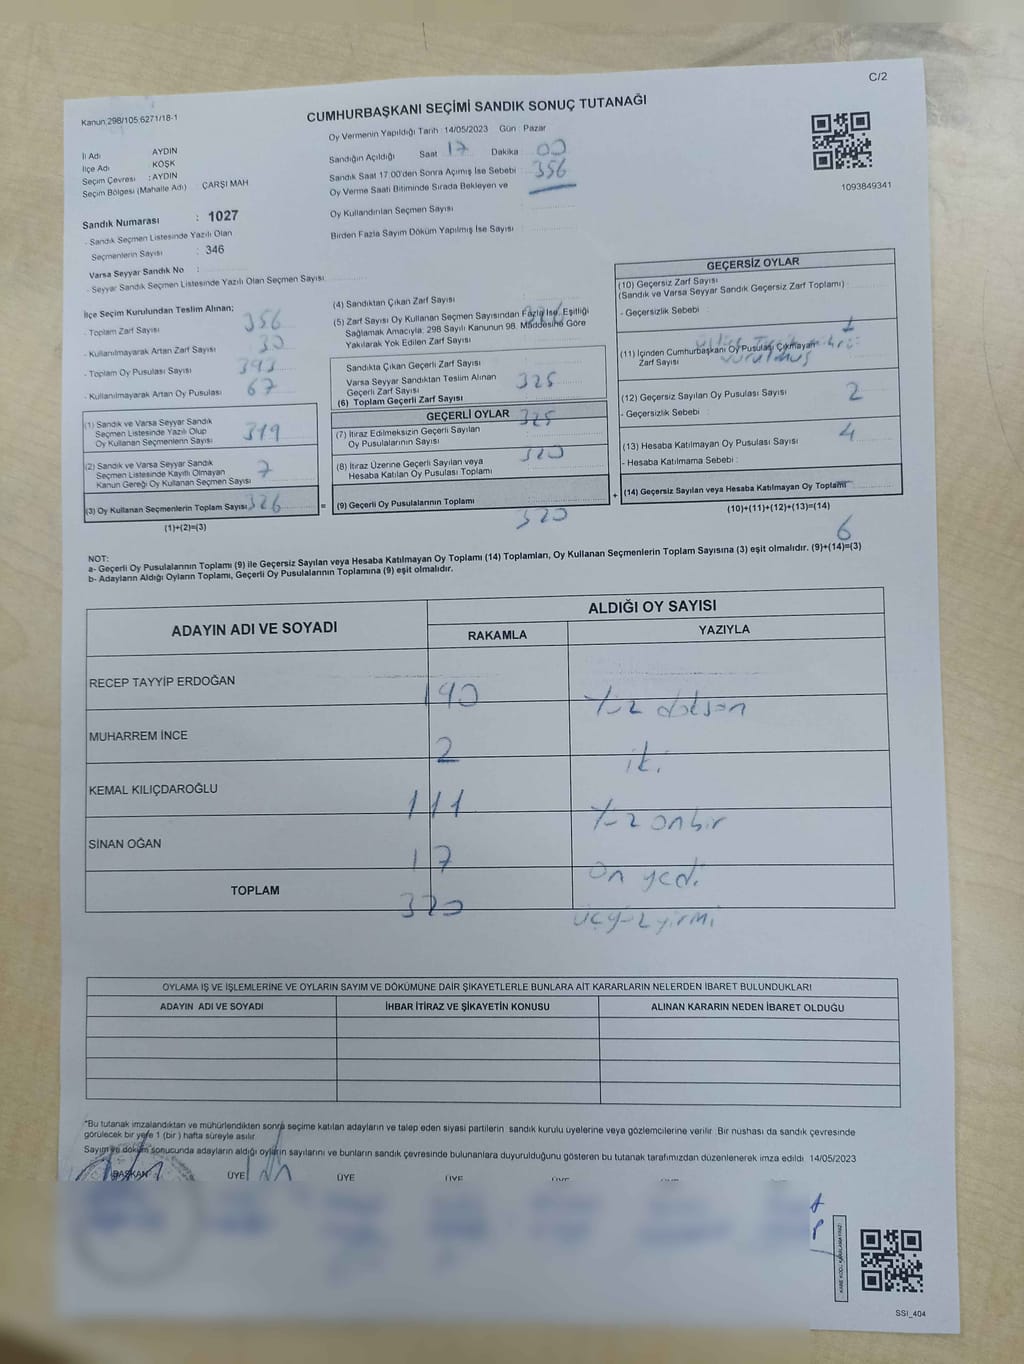 C/2
Kanun 298/105.6271/18-1
CUMHURBAŞKANI SEÇİMİ SANDIK SONUÇ TUTANAĞI
Oy Vermenin Yapıldığı Tarih : 14/05/2023 Gün : Pazar
İl Adı AYDIN
İlçe Adı KÖŞK
Seçim Çevresi : AYDIN
Seçim Bölgesi (Mahalle Adı) ÇARŞI MAH
Sandığın Açıldığı Saat 17 Dakika 00
Sandık Saat 17.00'den Sonra Açımış İse Sebebi : 356
Oy Verme Saati Bitiminde Sırada Bekleyen ve
Oy Kullandırılan Seçmen Sayısı
Birden Fazla Sayım Döküm Yapılmış İse Sayısı :
1093849341
Sandık Numarası : 1027
- Sandık Seçmen Listesinde Yazılı Olan
Seçmenlerin Sayısı : 346
Varsa Seyyar Sandık No :
- Seyyar Sandık Seçmen Listesinde Yazılı Olan Seçmen Sayısı
İlçe Seçim Kurulundan Teslim Alınan:
- Toplam Zarf Sayısı 356
- Kullanılmayarak Artan Zarf Sayısı 30
- Toplam Oy Pusulası Sayısı 393
- Kullanılmayarak Artan Oy Pusulası 67
(1) Sandık ve Varsa Seyyar Sandık
Seçmen Listesinde Yazılı Olup
Oy Kullanan Seçmenlerin Sayısı 319
(2) Sandık ve Varsa Seyyar Sandık
Seçmen Listesinde Kayıtlı Olmayan
Kanun Gereği Oy Kullanan Seçmen Sayısı 7
(3) Oy Kullanan Seçmenlerin Toplam Sayısı 326
(1)+(2)=(3)
=
(4) Sandıktan Çıkan Zarf Sayısı 326
(5) Zarf Sayısı Oy Kullanan Seçmen Sayısından Fazla İse, Eşitliği
Sağlamak Amacıyla; 298 Sayılı Kanunun 98. Maddesine Göre
Yakılarak Yok Edilen Zarf Sayısı
Sandıkta Çıkan Geçerli Zarf Sayısı
Varsa Seyyar Sandıktan Teslim Alınan
Geçerli Zarf Sayısı 325
(6) Toplam Geçerli Zarf Sayısı
GEÇERLİ OYLAR 325
(7) İtiraz Edilmeksizin Geçerli Sayılan
Oy Pusulalarının Sayısı 320
(8) İtiraz Üzerine Geçerli Sayılan veya
Hesaba Katılan Oy Pusulası Toplamı
(9) Geçerli Oy Pusulalarının Toplamı
320
+
GEÇERSİZ OYLAR
(10) Geçersiz Zarf Sayısı
(Sandık ve Varsa Seyyar Sandık Geçersiz Zarf Toplamı)
- Geçersizlik Sebebi : 1
(11) İçinden Cumhurbaşkanı Oy Pusulası Çıkmayan
Zarf Sayısı
(12) Geçersiz Sayılan Oy Pusulası Sayısı 2
- Geçersizlik Sebebi :
(13) Hesaba Katılmayan Oy Pusulası Sayısı 4
- Hesaba Katılmama Sebebi :
(14) Geçersiz Sayılan veya Hesaba Katılmayan Oy Toplamı
(10)+(11)+(12)+(13)=(14)
6
NOT:
a- Geçerli Oy Pusulalarının Toplamı (9) ile Geçersiz Sayılan veya Hesaba Katılmayan Oy Toplamı (14) Toplamları, Oy Kullanan Seçmenlerin Toplam Sayısına (3) eşit olmalıdır. (9)+(14)=(3)
b- Adayların Aldığı Oyların Toplamı, Geçerli Oy Pusulalarının Toplamına (9) eşit olmalıdır.
ADAYIN ADI VE SOYADI
ALDIĞI OY SAYISI
RAKAMLA YAZIYLA
RECEP TAYYİP ERDOĞAN 190 Yüz doksan
MUHARREM İNCE 2 iki
KEMAL KILIÇDAROĞLU 111 Yüz onbir
SİNAN OĞAN 17 On yedi
TOPLAM 320 üçyüzyirmi
OYLAMA İŞ VE İŞLEMLERİNE VE OYLARIN SAYIM VE DÖKÜMÜNE DAİR ŞİKAYETLERLE BUNLARA AİT KARARLARIN NELERDEN İBARET BULUNDUKLARI
ADAYIN ADI VE SOYADI İHBAR İTİRAZ VE ŞİKAYETİN KONUSU ALINAN KARARIN NEDEN İBARET OLDUĞU
"Bu tutanak imzalandıktan ve mühürlendikten sonra seçime katılan adayların ve talep eden siyasi partilerin sandık kurulu üyelerine veya gözlemcilerine verilir. Bir nüshası da sandık çevresinde
görülecek bir yere 1 (bir ) hafta süreyle asılır.
Sayım ve döküm sonucunda adayların aldığı oyların sayılarını ve bunların sandık çevresinde bulunanlara duyurulduğunu gösteren bu tutanak tarafımızdan düzenlenerek imza edildi. 14/05/2023
BAŞKAN ÜYE ÜYE ÜYE ÜYE ÜYE
SSI_404